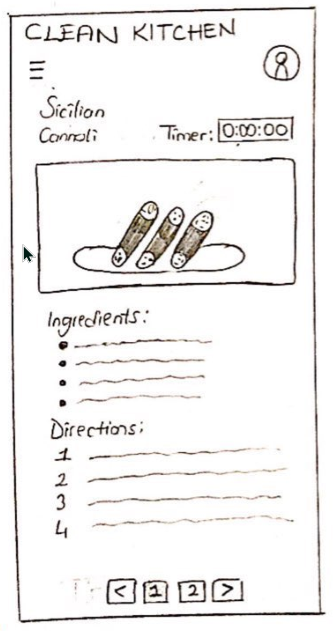 CLEAN KITCHEN
Sicilian
Cannoli
Timer: 0:00:00
Ingredients:
Directions:
1
2
3
4
< 1 2 >